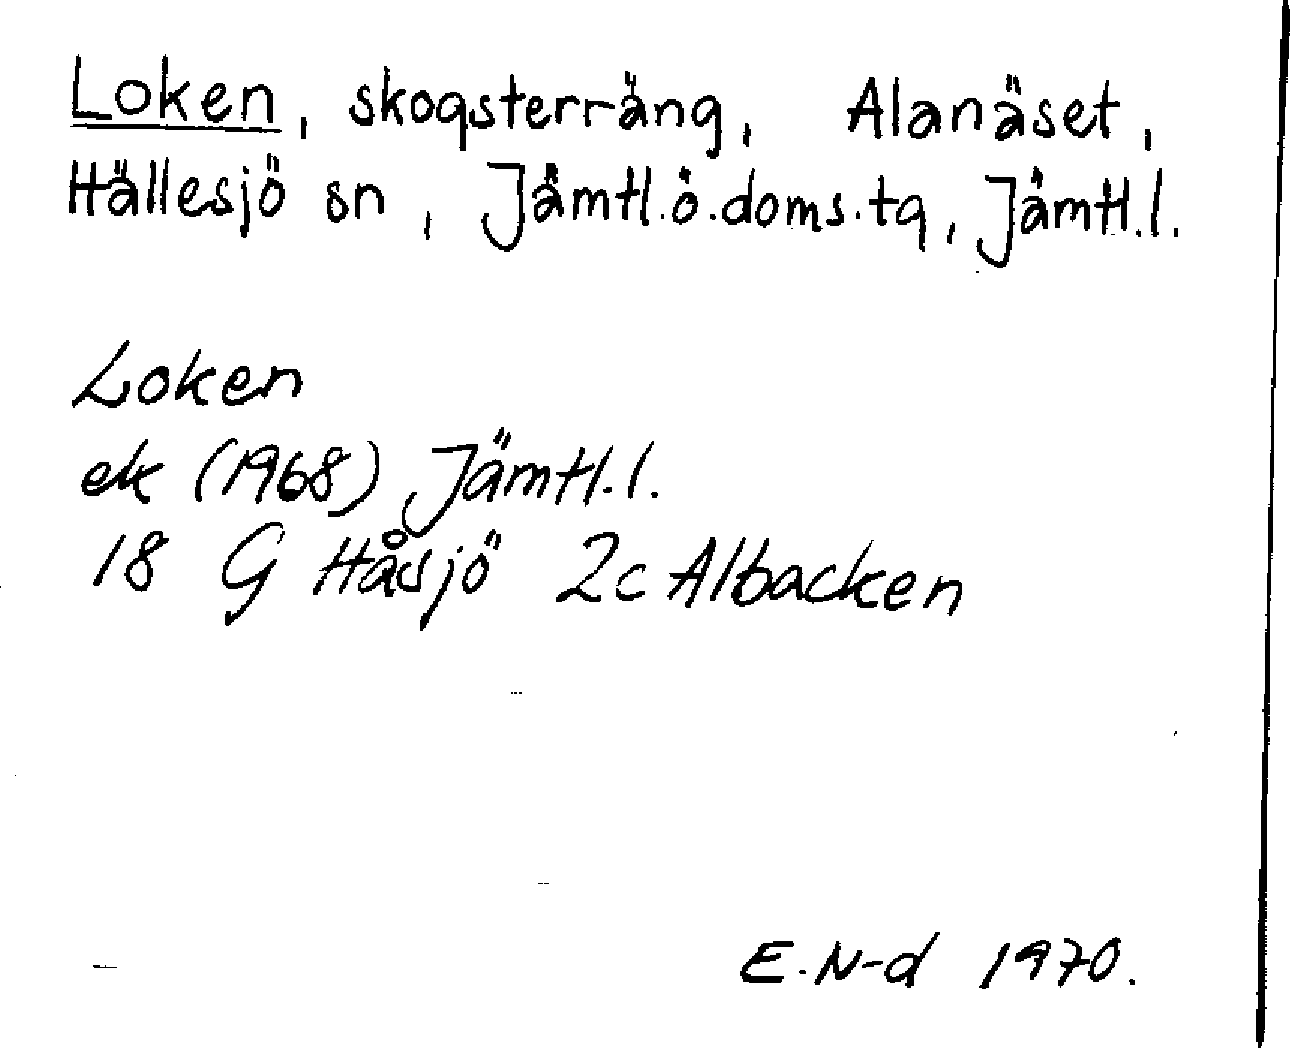 Loken, skogsterräng, Alanäset,
Hällesjö sn, Jämtl.ö.doms.tg, Jämtl.l.
Loken
ek (1968) Jämtl.l.
18 G Håsjö 2c Albacken
E.N-d 1970.